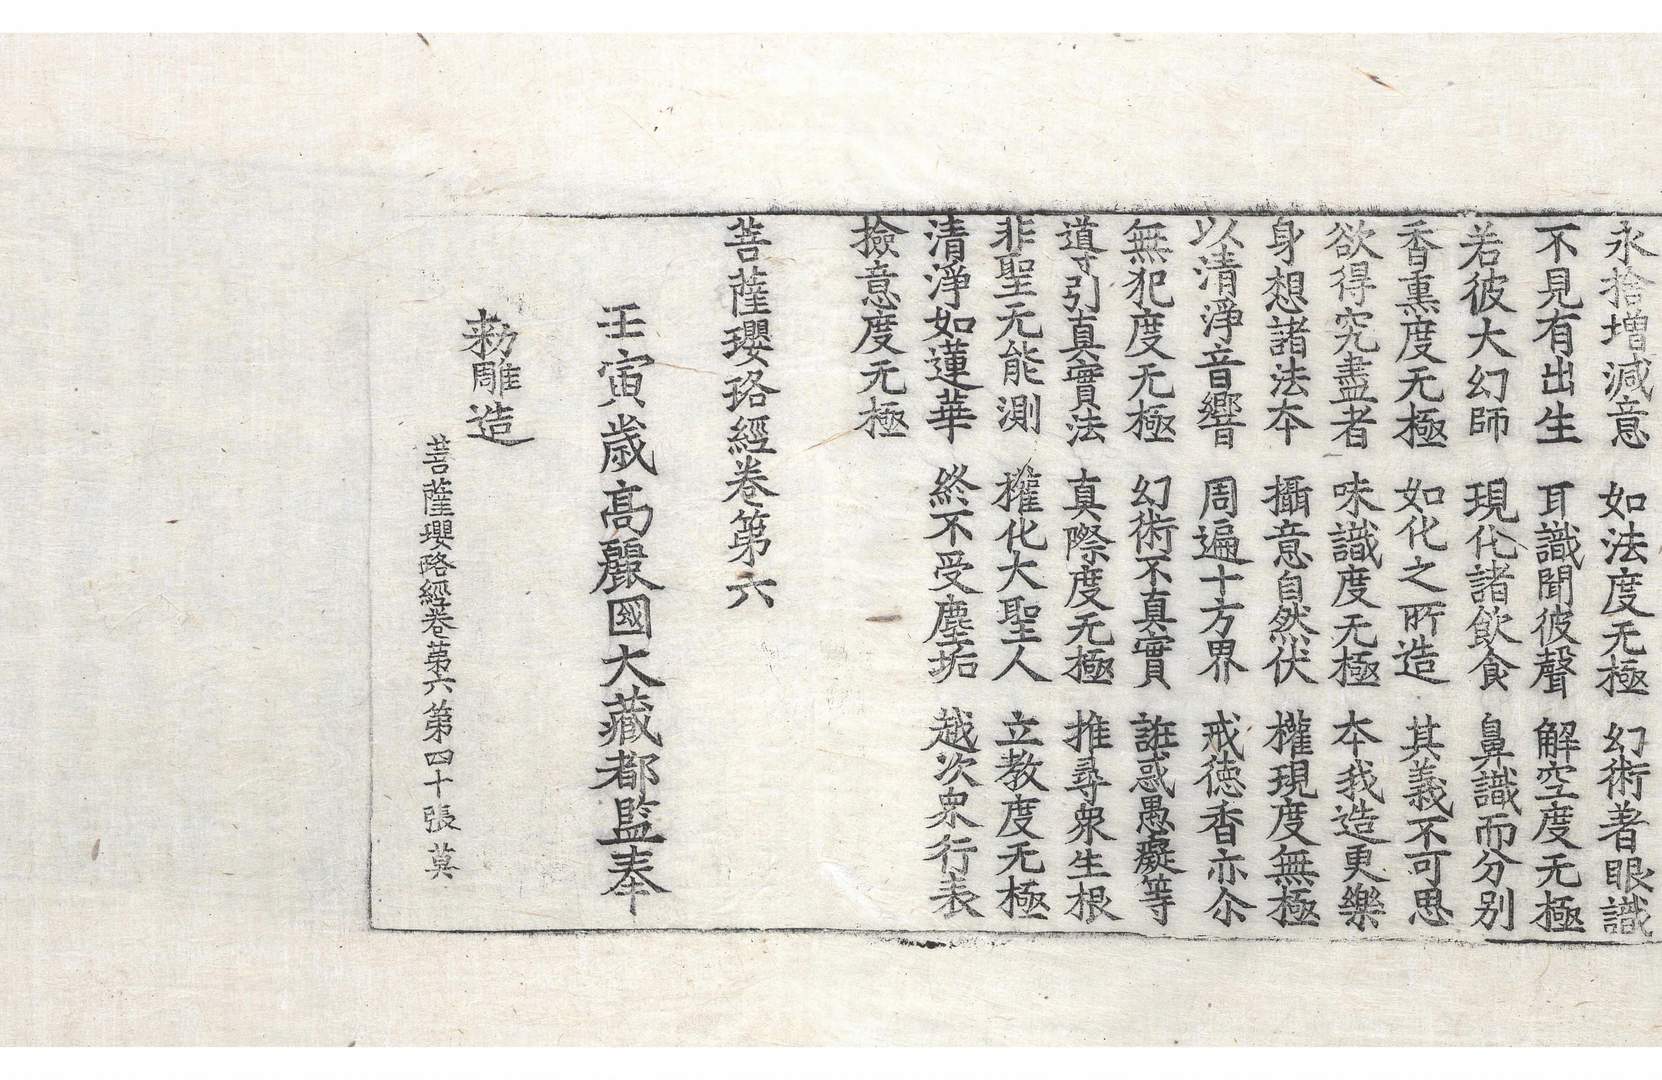 永捨增減意 如法度无極 幻術著眼識
不見有出生 耳識聞彼聲 解空度无極
若彼大幻師 現化諸飲食 鼻識而分別
香熏度无極 如化之所造 其義不可思
欲得究盡者 味識度无極 本我造更樂
身想諸法本 攝意自然伏 權現度無極
以清淨音響 周遍十方界 戒德香亦尒
無犯度无極 幻術不真實 誑惑愚癡等
導引真實法 真際度无極 推尋衆生根
非聖无能測 權化大聖人 立教度无極
清淨如蓮華 終不受塵垢 越次衆行表
撿意度无極
菩薩瓔珞經卷第六
壬寅歲高麗國大藏都監奉
勑雕造
菩薩瓔珞經卷第六 第四十張 莫